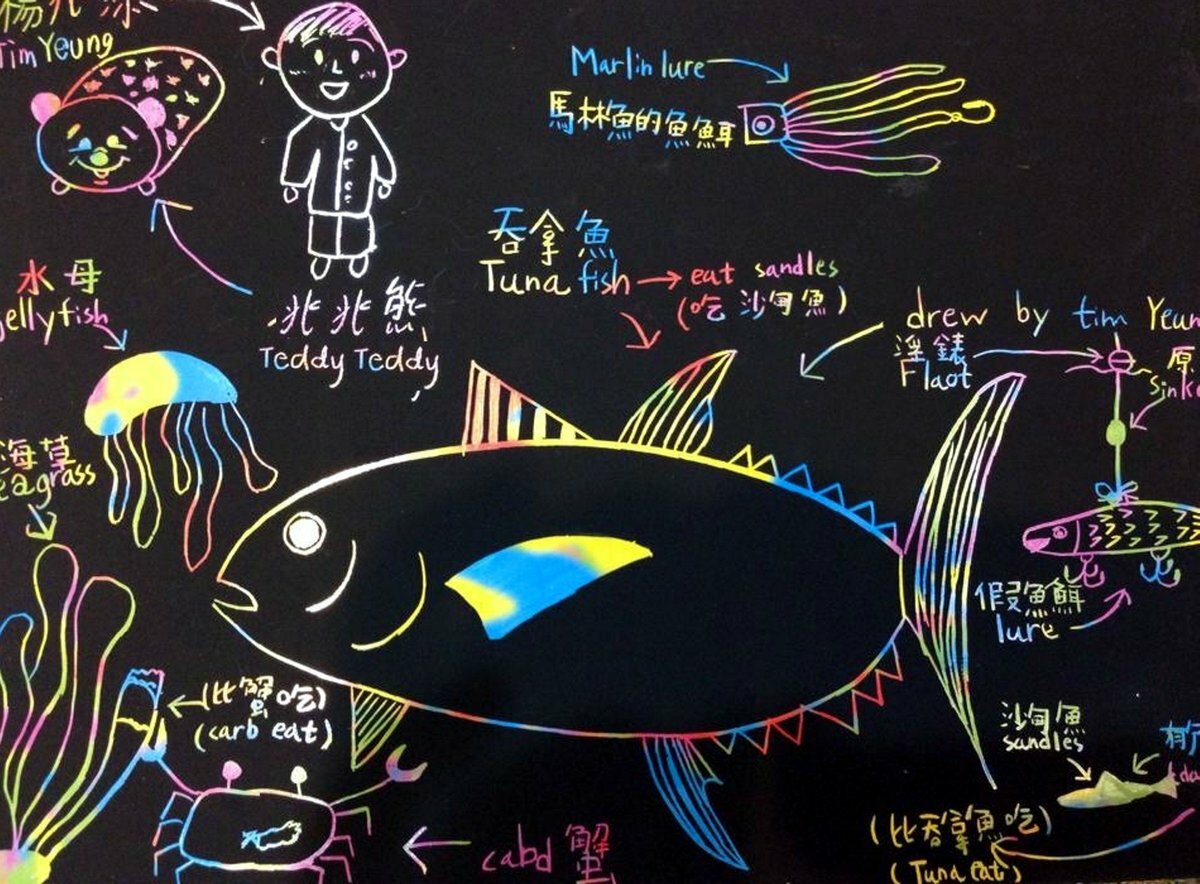 楊兆添
Tim Yeung
Marlin lure
馬林魚的魚餌
吞拿魚
Tuna fish → eat sandles
(吃沙甸魚)
水母
jellyfish
兆兆熊
Teddy Teddy
drew by tim Yeun
Flaot
海草
eagrass
假魚餌
lure
(比蟹吃)
(carb eat)
沙甸魚
sandles
(比吞拿魚吃)
(Tuna eat)
cabd 蟹